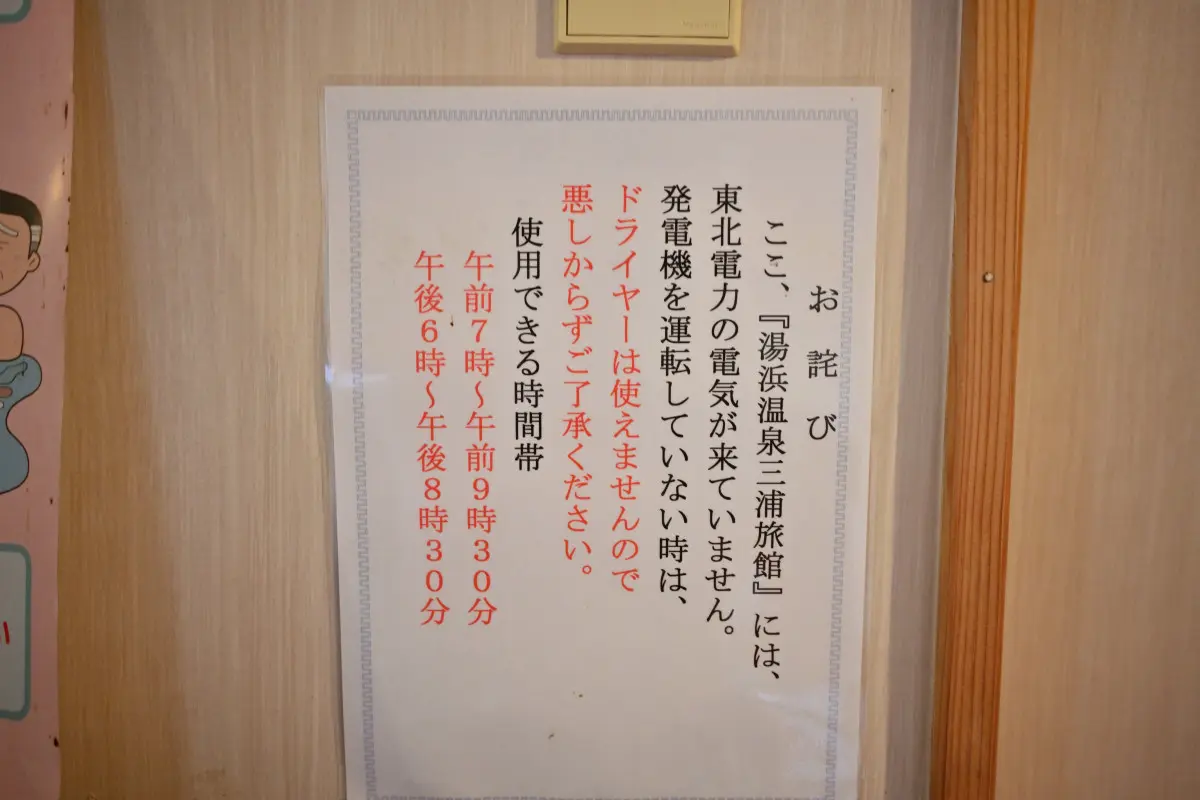 お詫び
ここ、『湯浜温泉三浦旅館』には、
東北電力の電気が来ていません。
発電機を運転していない時は、
ドライヤーは使えませんので
悪しからずご了承ください。
使用できる時間帯
午前7時～午前9時30分
午後6時～午後8時30分